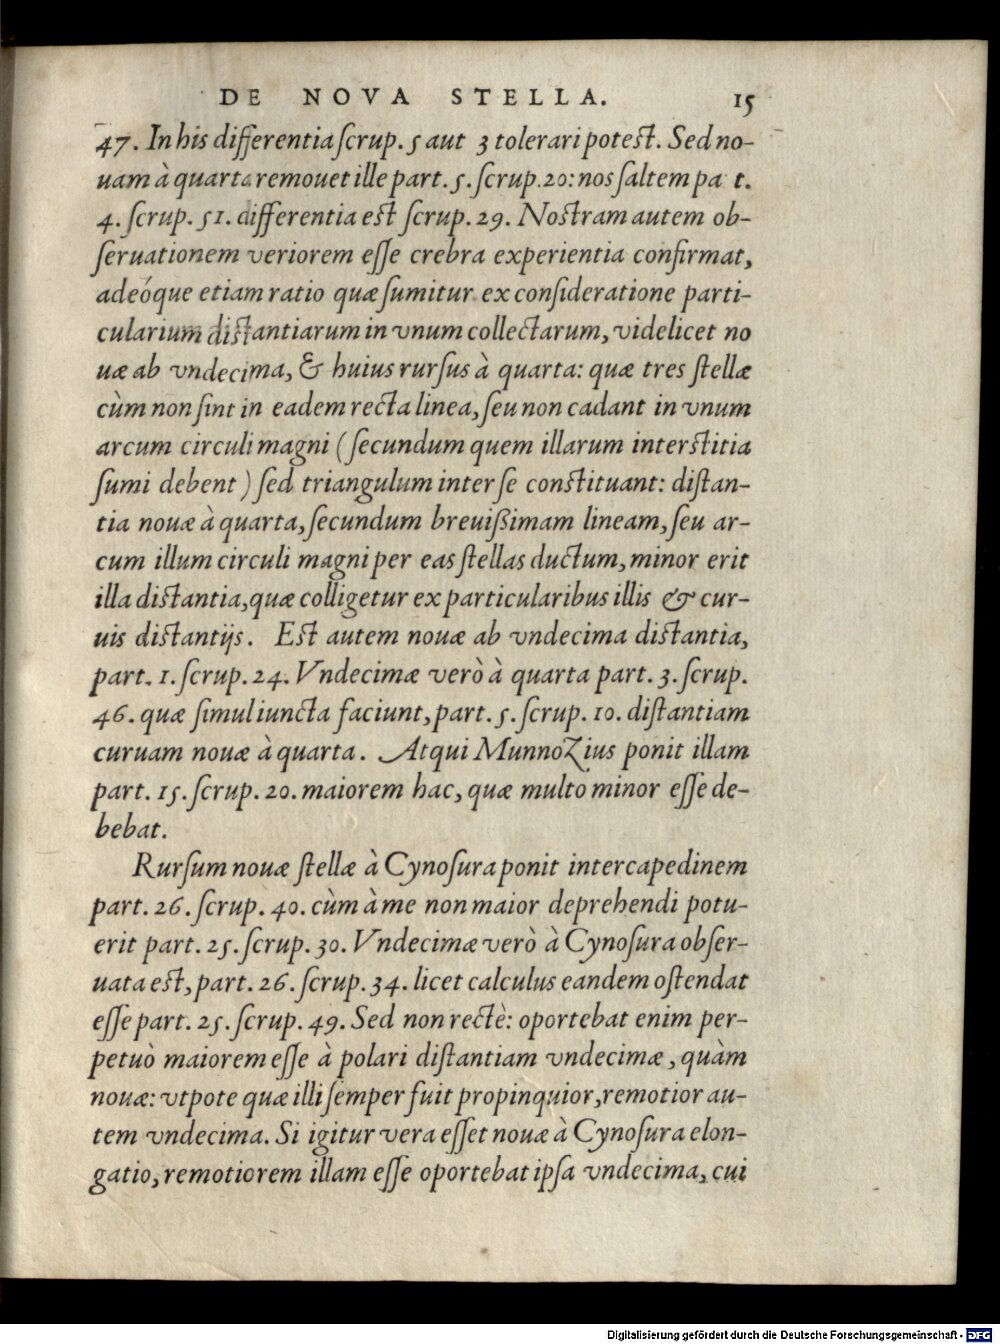 DE NOVA STELLA. 15
47. In his differentia ſcrup. 5 aut 3 tolerari poteſt. Sed no-
uam à quarta remouet ille part. 5. ſcrup. 20: nos ſaltem pa t.
4. ſcrup. 51. differentia eſt ſcrup. 29. Noſtram autem ob-
ſeruationem veriorem eſſe crebra experientia confirmat,
adeóque etiam ratio quæ ſumitur ex conſideratione parti-
cularium diſtantiarum in vnum collectarum, videlicet no
uæ ab vndecima, & huius rurſus à quarta: quæ tres ſtellæ
cùm non ſint in eadem recta linea, ſeu non cadant in vnum
arcum circuli magni (ſecundum quem illarum interſtitia
ſumi debent) ſed triangulum inter ſe conſtituant: diſtan-
tia nouæ à quarta, ſecundum breuißimam lineam, ſeu ar-
cum illum circuli magni per eas ſtellas ductum, minor erit
illa diſtantia, quæ colligetur ex particularibus illis & cur-
uis diſtantijs. Eſt autem nouæ ab vndecima diſtantia,
part. 1. ſcrup. 24. Vndecimæ verò à quarta part. 3. ſcrup.
46. quæ ſimul iuncta faciunt, part. 5. ſcrup. 10. diſtantiam
curuam nouæ à quarta. Atqui MunnoZius ponit illam
part. 15. ſcrup. 20. maiorem hac, quæ multo minor eſſe de-
bebat.
Rurſum nouæ ſtellæ à Cynoſura ponit intercapedinem
part. 26. ſcrup. 40. cùm à me non maior deprehendi potu-
erit part. 25. ſcrup. 30. Vndecimæ verò à Cynoſura obſer-
uata eſt, part. 26. ſcrup. 34. licet calculus eandem oſtendat
eſſe part. 25. ſcrup. 49. Sed non rectè: oportebat enim per-
petuò maiorem eſſe à polari diſtantiam vndecimæ, quàm
nouæ: vtpote quæ illi ſemper fuit propinquior, remotior au-
tem vndecima. Si igitur vera eſſet nouæ à Cynoſura elon-
gatio, remotiorem illam eſſe oportebat ipſa vndecima, cui
Digitalisierung gefördert durch die Deutsche Forschungsgemeinschaft - DFG